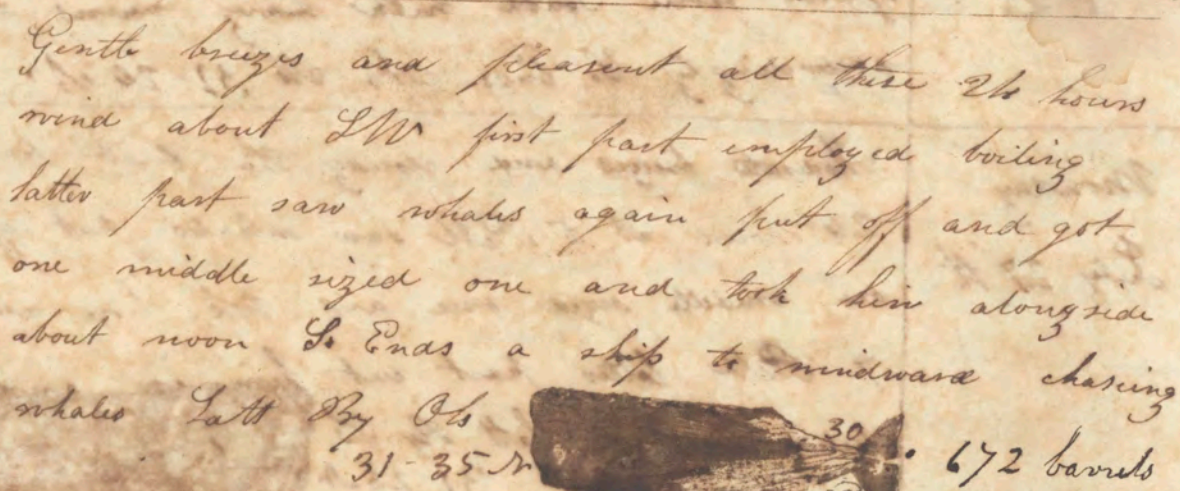 Gentle breezes and pleasent all these 24 hours
wind about SW first part employed boiling
latter part saw whales again put off and got
one middle sized one and took him alongside
about noon So Ends a ship to windward chasing
whales Latt By Obs
31-35 N 30 672 barrels